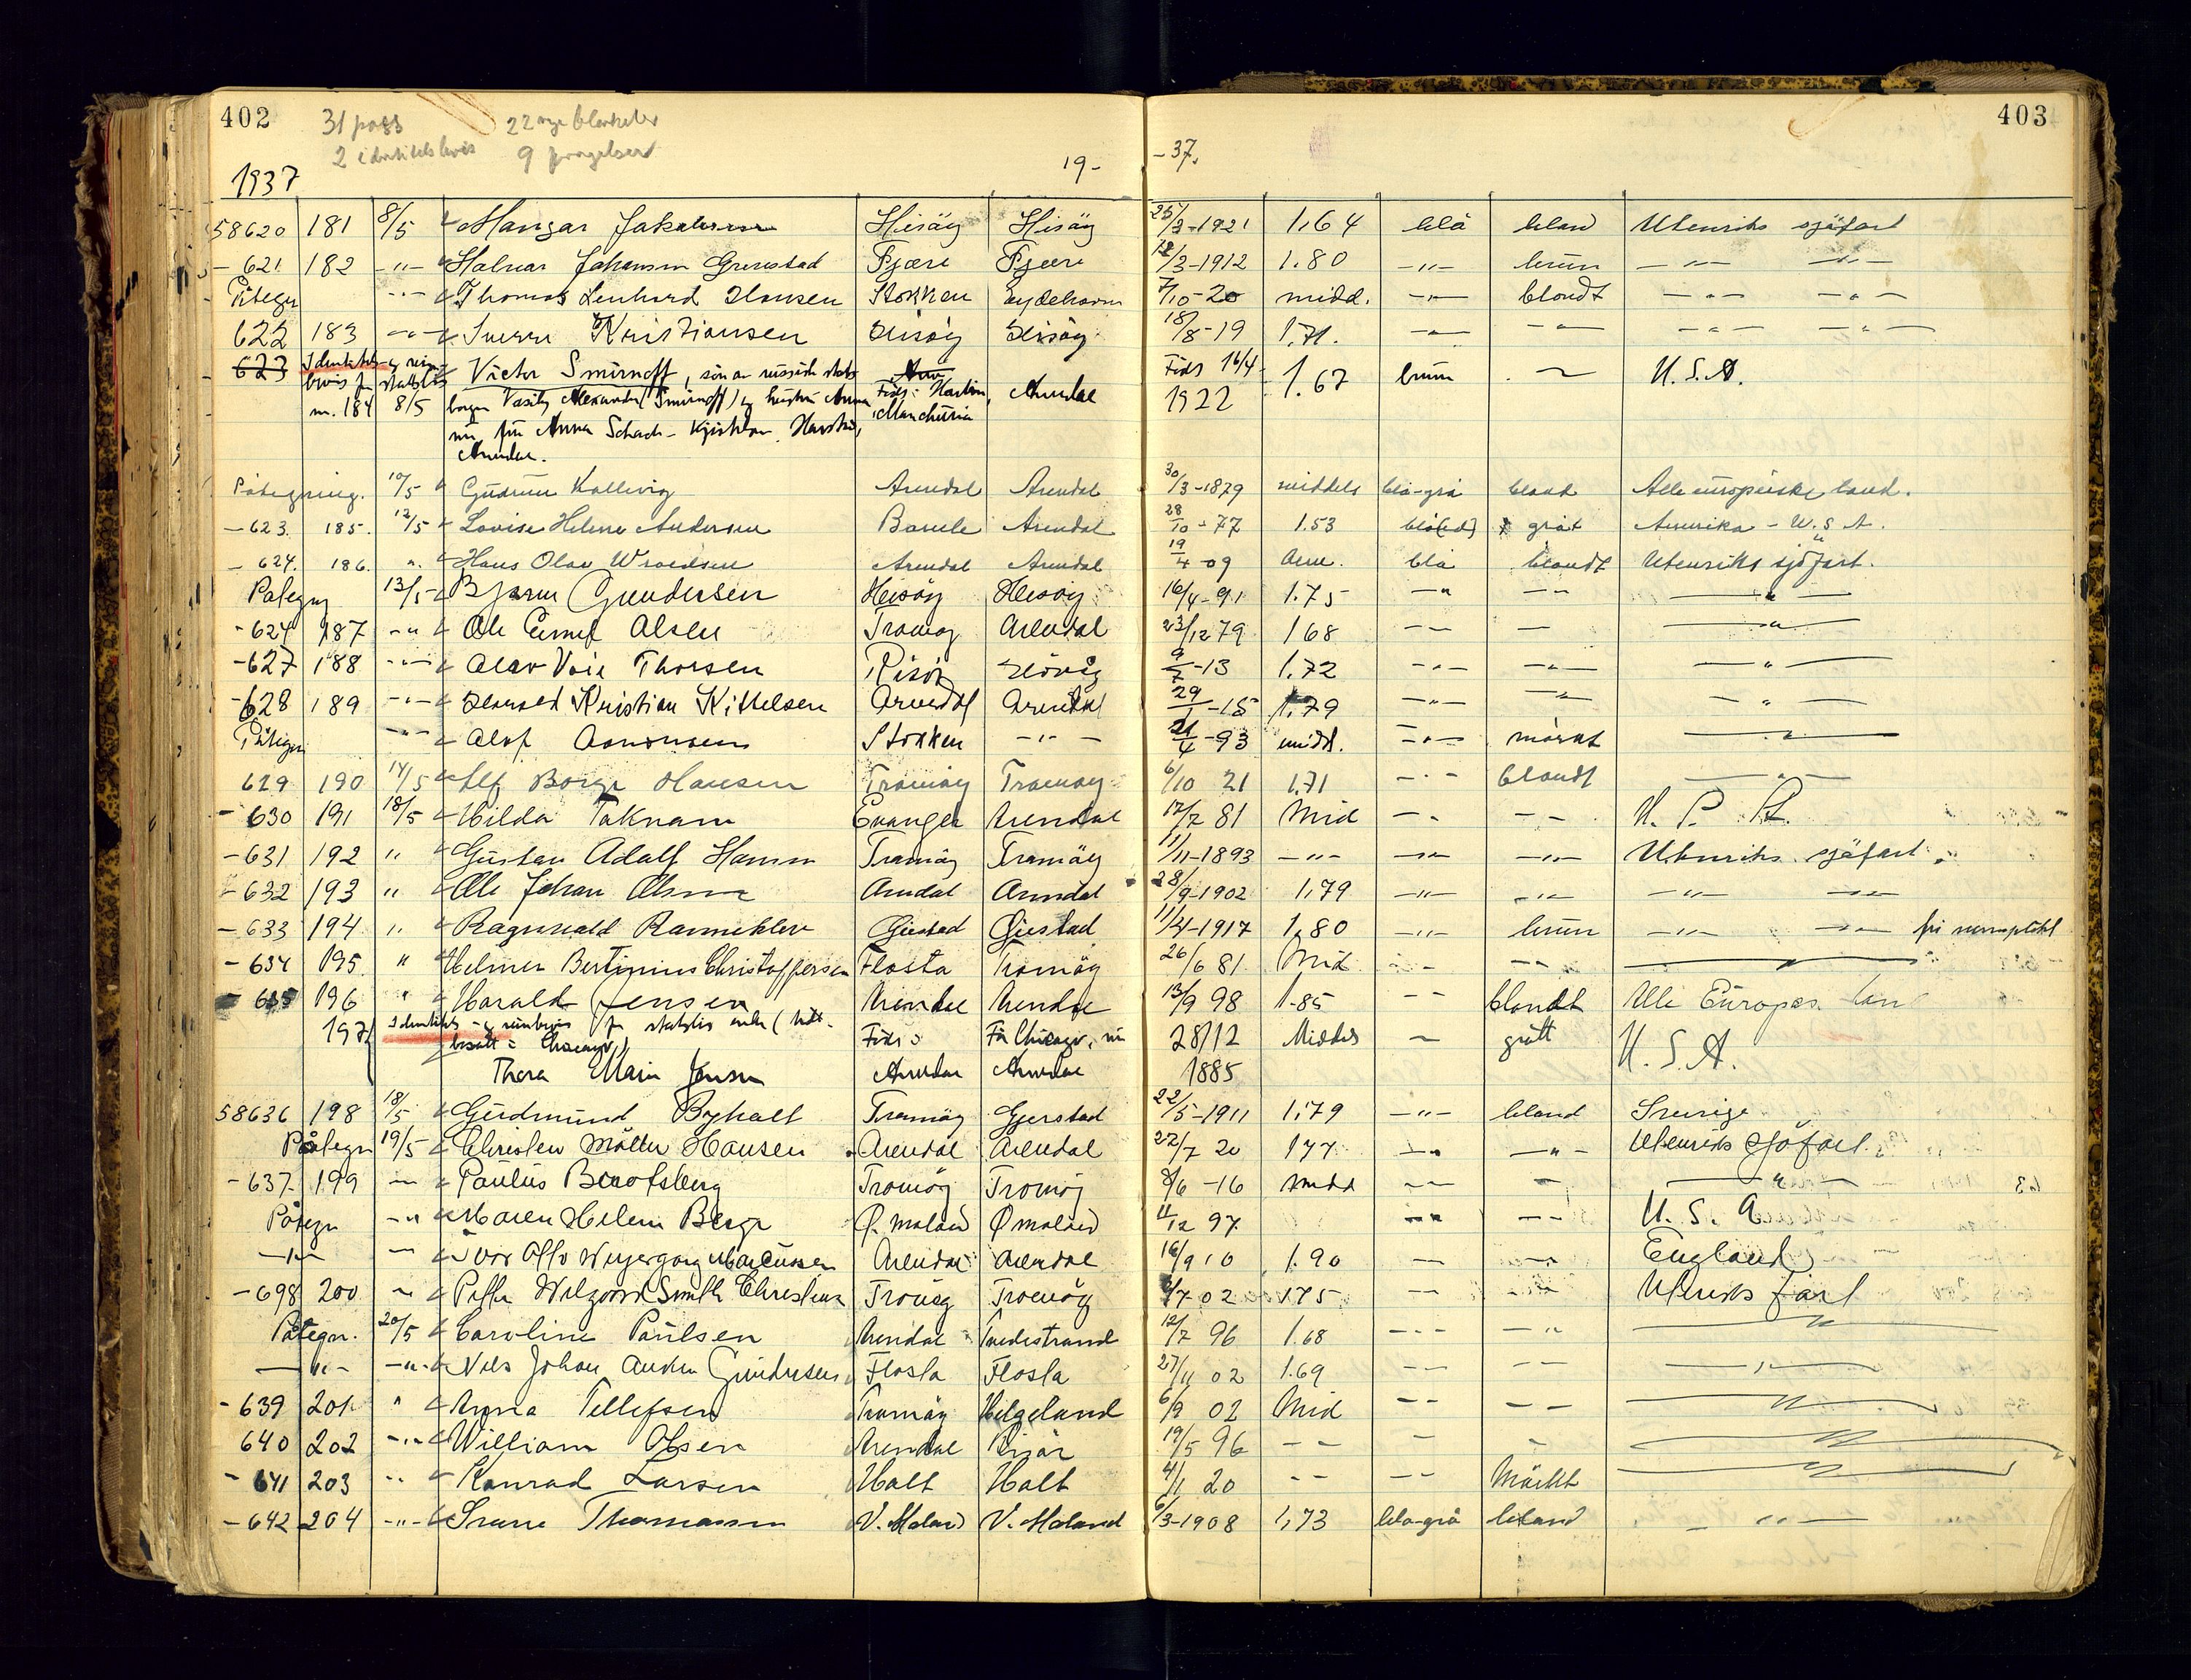 402 403
31 pass 22 nye blanketer
2 identitetsbevis 9
1937 19- -37.
58620 181 8/5 Mangar Jakobsen Hisöy Hisöy 25/3-1921 1,64 blå blond Utenriks sjöfart
- 621 182 -"- Halvar Johansen Grimstad Fjære Fjære 12/3-1912 1.80 -"- brun -"- -"-
Påtegn -"- Thomas Lenhard Hansen Stokken Eydehavn 7/10-20 midd. -"- blondt -"- -"-
622 183 -"- Sverre Kristiansen Hisöy Hisöy 18/8-19 1.71. -"- -"- -"- -"-
623 Identitets- og reise- Victor Smirnoff, sön av russisk stats- Föds 16/4- 1.67 brun U.S.A.
bevis for statslös borger Vasily Alexander Smirnoff og hustru Anna Föds: Harbin, Arendal 1922
nr. 184 8/5 nu fru Anna Schach- Manchuria
Arendal.
Påtegning. 10/5 Gudrun Kallevig Arendal Arendal 30/3-1879 middels blå-grå blond Alle europeiske land.
- 623. 185. 12/5 Lovise Helene Andersen Barule Arendal 28/10-77 1.53 gråt Amerika - U.S.A.
- 624. 186. ". Hans Olav Arendal Arendal 19/4-09 blå blondt Utenriks sjöfart.
Påtegn 13/5 Bjarne Gundersen Hisöy Hisöy 16/4-91 1.75 -"- -"- -"-
- 624 187 -"- Ole Olsen Tromöy Arendal 23/12 79 168 -"- - -"-
- 627 188 -"- Olav Voie Thorsen Risör Hisöy 9/7-13 1.72 -"- -"- -"-
- 628 189 -"- Harald Kristian Kittelsen Arendal Arendal 29/1-15 1.79 -"- -"- -"-
Påtegn -"- Olaf Aanonsen Stokken -"- 21/4-93 midd. -"- mörkt -"-
629 190 14/5 Alf Borge Hansen Tromöy Tromöy 6/10 21 1.71 -"- blondt -"-
- 630 191 18/5 Hilda Taknam Evanger Arendal 17/7 81 Mid -"- -"-
- 631 192 " Gustav Adolf Hansen Tromöy Tromöy 11/11-1893 -"- -"- -"- Utenriks sjöfart.
- 632 193 " Ole Johan Olsen Arendal Arendal 28/9-1902 1,79 -"- -"- -"- -"-
- 633 194 " Ragnvald Gjerstad Gjerstad 11/4-1917 1,80 -"- brun -"- -"-
- 634 195 " Helmer Bertinius Christoffersen Flosta Tromöy 26/6 81 Mid -"- -"- -"-
- 635 196 " Harald Jensen Arendal Arendal 13/9 98 1-85 -"- blondt Alle Europas lan
197 Identitets- og reisebevis for statslös enke Föds: Fra Chicago, nu 28/12 Middels - grått U.S.A.
Thora Marie Jensen Arendal Arendal 1885
58636 198 18/5 Gudmund Byholt Tromöy Gjerstad 22/5-1911 1,79 -"- blond Sverige
Påtegn 19/5 Christen Möller Hansen Arendal Arendal 22/7 20 177 -"- -"- Utenriks sjöfart.
- 637 199 -"- Paulus Tromöy Tromöy 8/6-16 midd -"- - -"-
Påtegn -"- Maren Helene Berge Ö. Moland Ö moland 11/12 97 -"- -"- U.S.A
-"- -"- Ivar Otto Marcussen Arendal Arendal 16/9 10 1.90 - -"- England
- 698 200 -"- Smith Christensen Tromöy Tromöy 7 02 1.75 -"- -"- Utenriks fart
Påtegn. 20/5 Caroline Paulsen Arendal Tvedestrand 12/7 96 1.68 -"- -"- -"-
-"- -"- Nils Johan Gundersen Flosta Flosta 27/11 02 1.69 -"- -"- -"-
- 639 201 " Anna Tellefsen Tromöy Helgeland 6/9 02 Mid -"- -"- -"-
640 202 -"- William Olsen Arendal Risör 19/5 96 -"- - - -"-
- 641 203 " Konrad Larsen Holt Holt 4/11 20 -"- -"- Mörkt -"-
- 642 204 -"- Sverre Thomassen V. Moland V. Moland 6/3-1908 1,73 blå-grå blond -"-